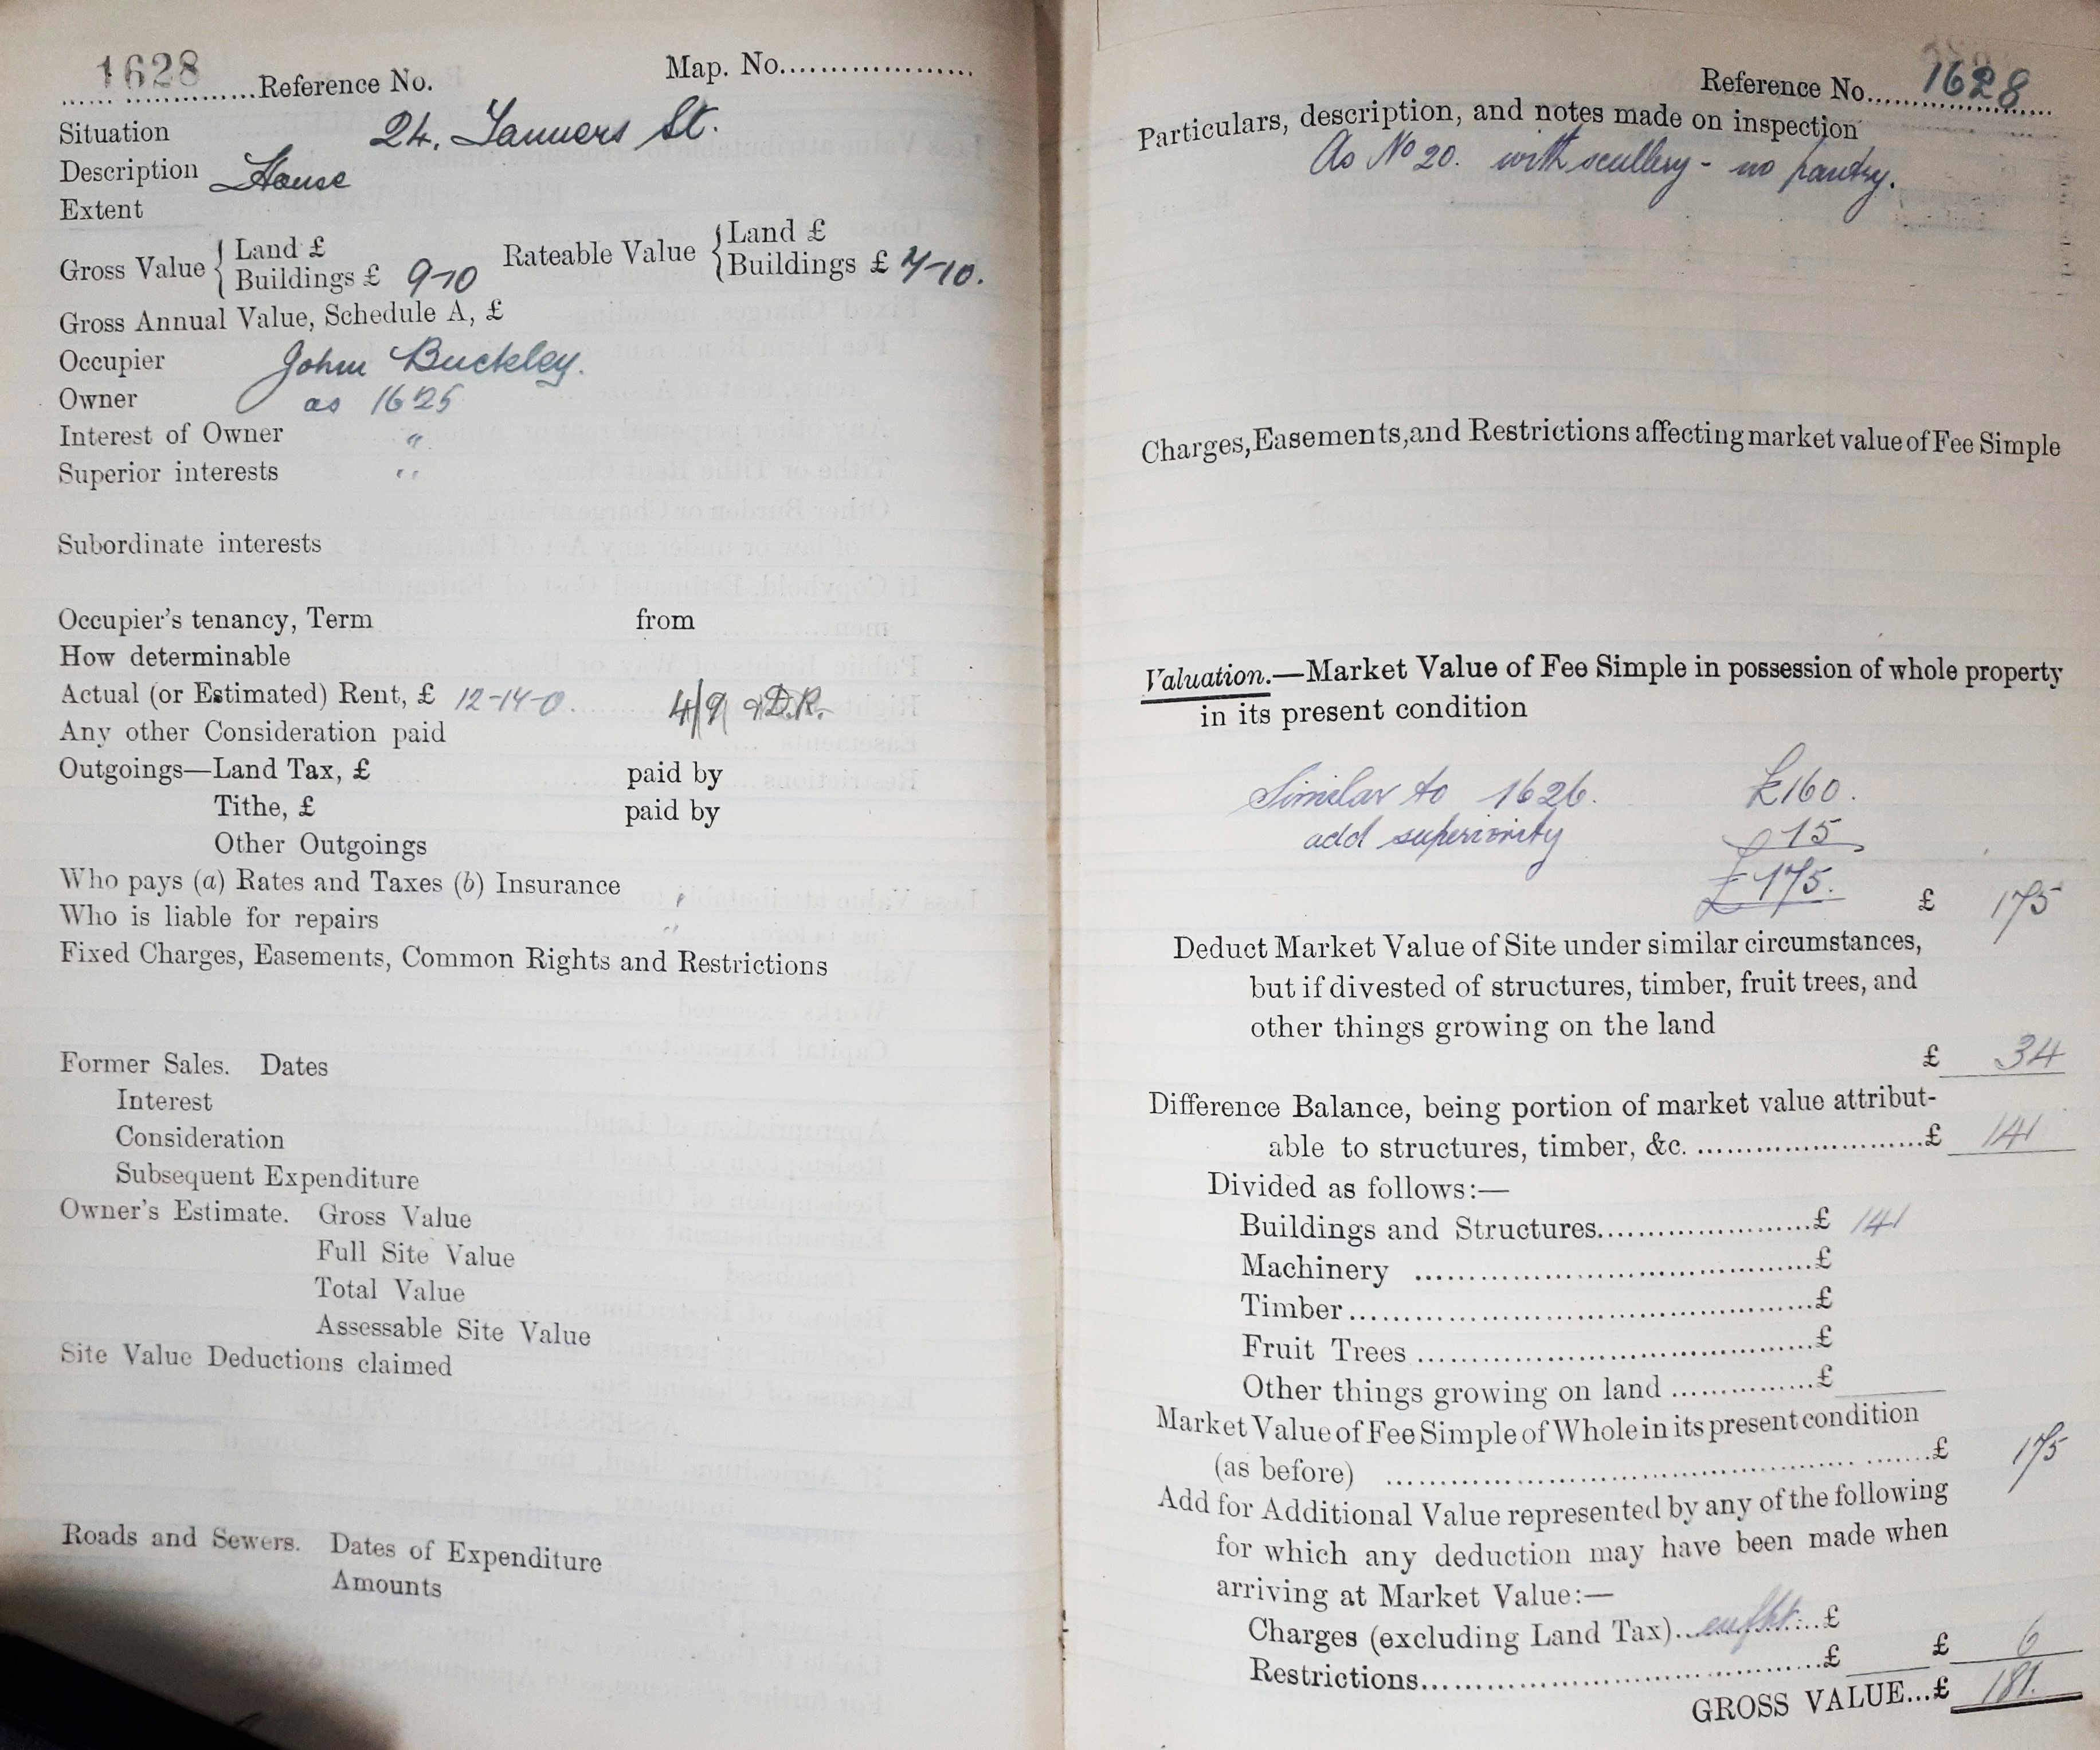 1628
...... ..............Reference No.
Map. No....................
Situation 24, Tanners St.
Description House
Extent
Gross Value { Land £
Buildings £ 9-10
Rateable Value { Land £
Buildings £ 7-10.
Gross Annual Value, Schedule A, £
Occupier John Buckley.
Owner as 1625
Interest of Owner "
Superior interests "
Subordinate interests
Occupier's tenancy, Term from
How determinable
Actual (or Estimated) Rent, £ 12-14-0. 4/9 & D.R.
Any other Consideration paid
Outgoings—Land Tax, £ paid by
Tithe, £ paid by
Other Outgoings
Who pays (a) Rates and Taxes (b) Insurance
Who is liable for repairs "
Fixed Charges, Easements, Common Rights and Restrictions
Former Sales. Dates
Interest
Consideration
Subsequent Expenditure
Owner's Estimate. Gross Value
Full Site Value
Total Value
Assessable Site Value
Site Value Deductions claimed
Roads and Sewers. Dates of Expenditure
Amounts
Reference No. 1628
Particulars, description, and notes made on inspection
As No 20. with scullery - no pantry.
Charges, Easements, and Restrictions affecting market value of Fee Simple
Valuation.—Market Value of Fee Simple in possession of whole property
in its present condition
Similar to 1626. £160.
add superiority 15
£175. £ 175
Deduct Market Value of Site under similar circumstances,
but if divested of structures, timber, fruit trees, and
other things growing on the land
£ 34
Difference Balance, being portion of market value attribut-
able to structures, timber, &c. ........................£ 141
Divided as follows:—
Buildings and Structures......................£ 141
Machinery ........................................£
Timber..............................................£
Fruit Trees ........................................£
Other things growing on land ...............£
Market Value of Fee Simple of Whole in its present condition
(as before) ........................................................£ 175
Add for Additional Value represented by any of the following
for which any deduction may have been made when
arriving at Market Value:—
Charges (excluding Land Tax)...............£
Restrictions........................................£ £ 6
GROSS VALUE...£ 181.